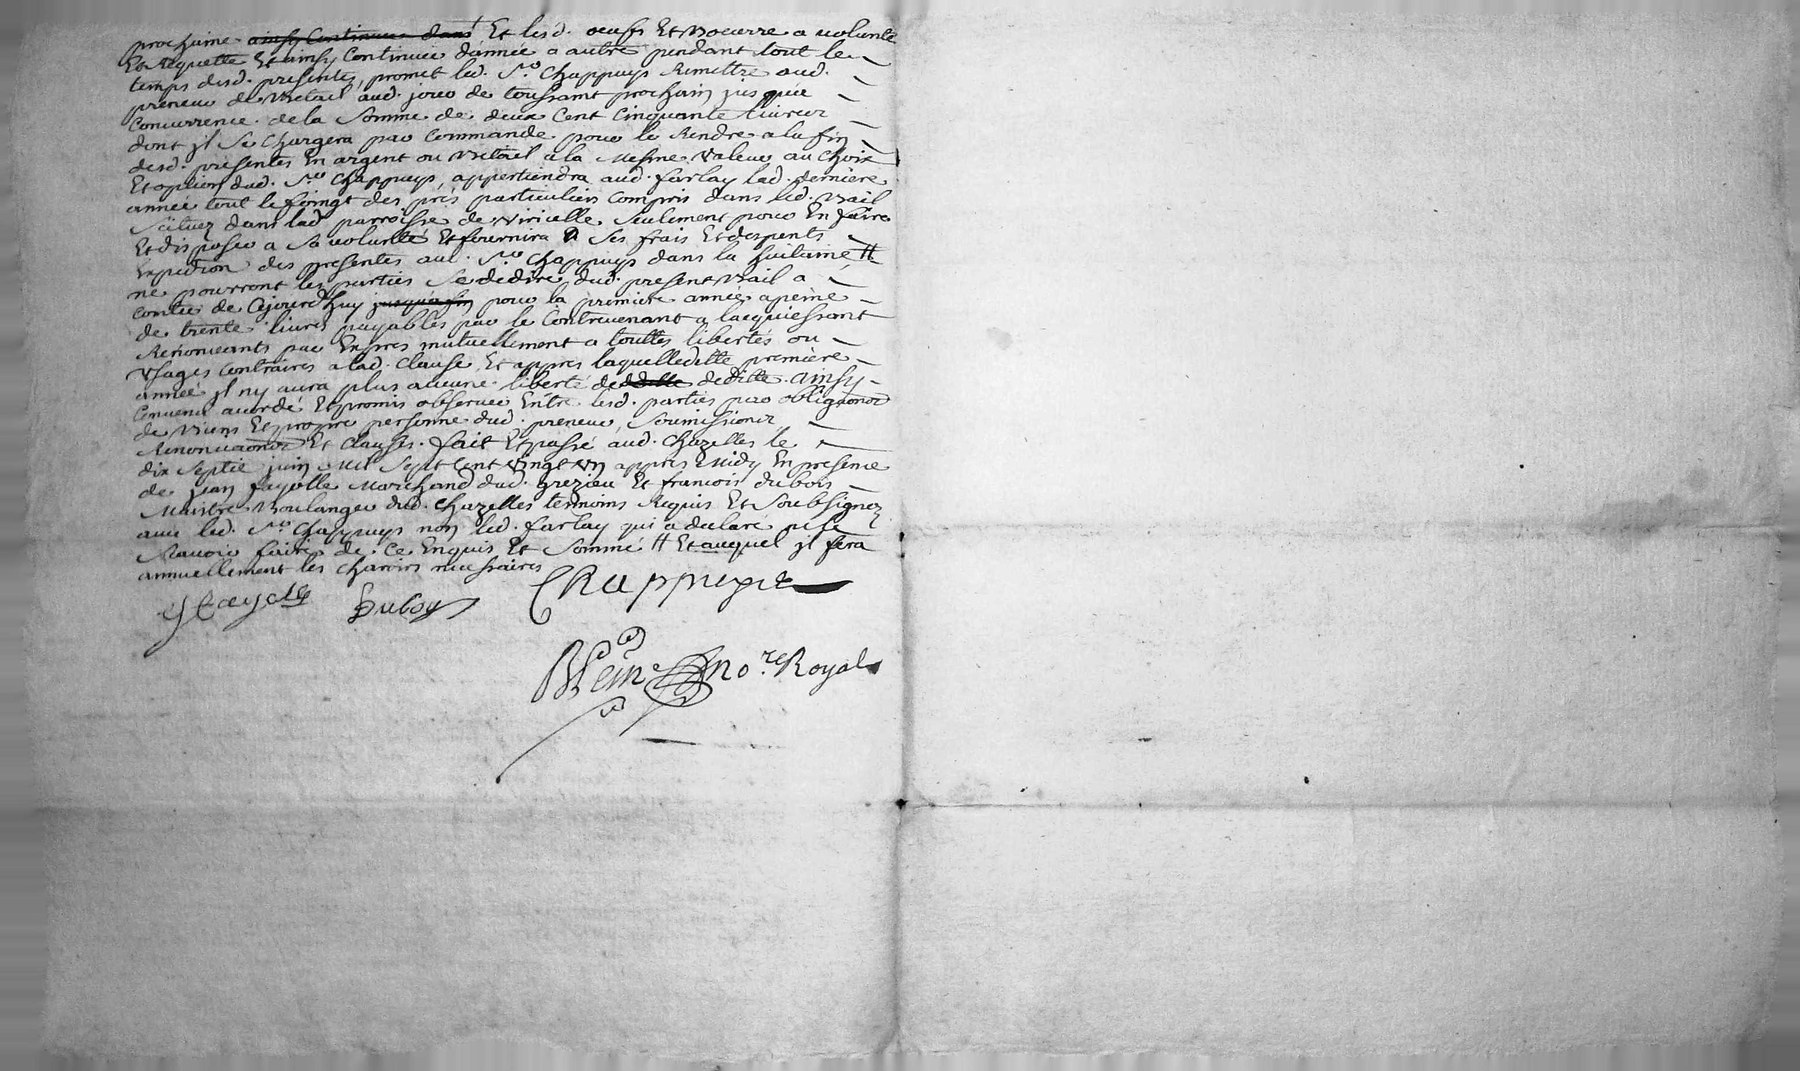 prochaine ainsy Continuer dans Et lesd. oeufs Et Boeurre a volunté
Et Requette Et ainsy Continuer d'année a autre pendant tout le
temps desd. presentes, promet led. Sr. Chappuys Remettre aud.
preneur du Bétail aud. jour de toussaint prochain jusque
Concurrence de la Somme de deux Cent Cinquante livres
dont jl Se Chargera par Commande pour le Rendre a la fin
desd. presentes En argent ou Bétail a la Mesme Valeur au Choix
Et option dud. Sr. Chappuys, appertiendra aud. farlay lad. derniere
année tout le foingt des prés particuliers Compris dans led. Bail
Scituez dans lad. parroisse de Viricelle Seulement pour En faire
Et disposer a Sa volunté Et fournira a Ses frais Et despents
Expedition des presentes aud. Sr. Chappuys dans la huitaine #
ne pourront les parties Se dedire dud. present Bail a
Conter de Cejourd'huy jusqu'a fin pour la premiere année a peine
de trente livres payables par le Contrevenant a lacquiessant
Renonceants par Expres mutuellement a touttes libertés ou
Usages Contraires a lad. Clause, Et appres laquelleditte premiere
année jl ny aura plus aucune liberté de deditte ainsy
Convenu accordé Et promis observer Entre lesd. parties par obligaons
de Biens Et propre personne dud. preneur, Soumissions
Renonciaons Et Clauses. fait Et passé aud. Chazelles le
dix Septie juin Mil Sept Cent Vingt Un appres Midy En presence
de jean fayolle Marchand dud. grezieu Et francois dubois
Maistre Boulanger dud. Chazelles temoins Requis Et Soubsignez
avec led. Sr. Chappuys non led. farlay qui a declaré ne le
Scavoir faire de Ce Enquis Et Sommé # Et auquel jl fera
annuellement les Charois necessaires
Chappuys
Duboy
nore Royal